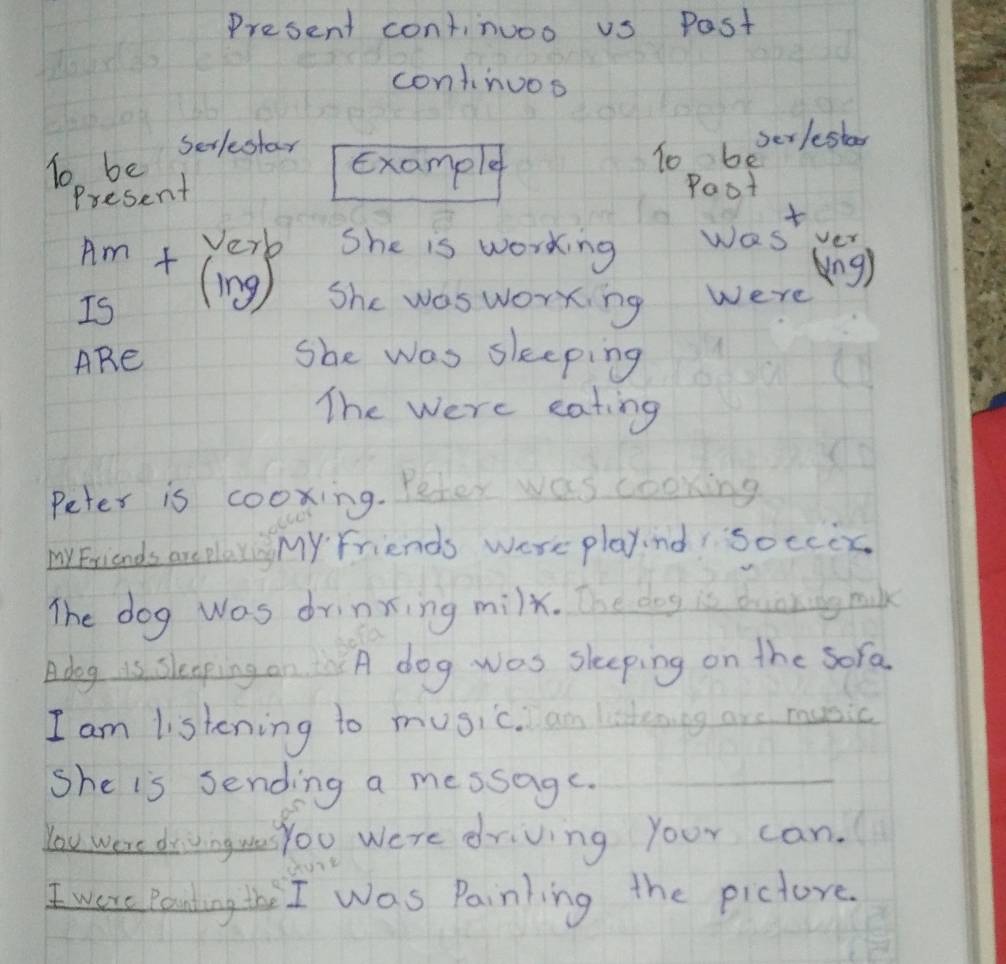 Present continuos vs Past
continuos
To be ser/estar Example To be ser/estar
Present Past
Am + Verb She is working Was + ver
(ing) (ing)
IS She was working Were
ARE She was sleeping
The were eating
Peter is cooking. Peter was cooking
My Friends are playing soccer MY Friends were playind soccer.
The dog was drinking milk. The dog is drinking milk
A dog is sleeping on the sofa A dog was sleeping on the sofa.
I am listening to music. I am listening are music
She is sending a message.
You were driving You were driving your can.
I were Painting the picture I was Painting the picture.